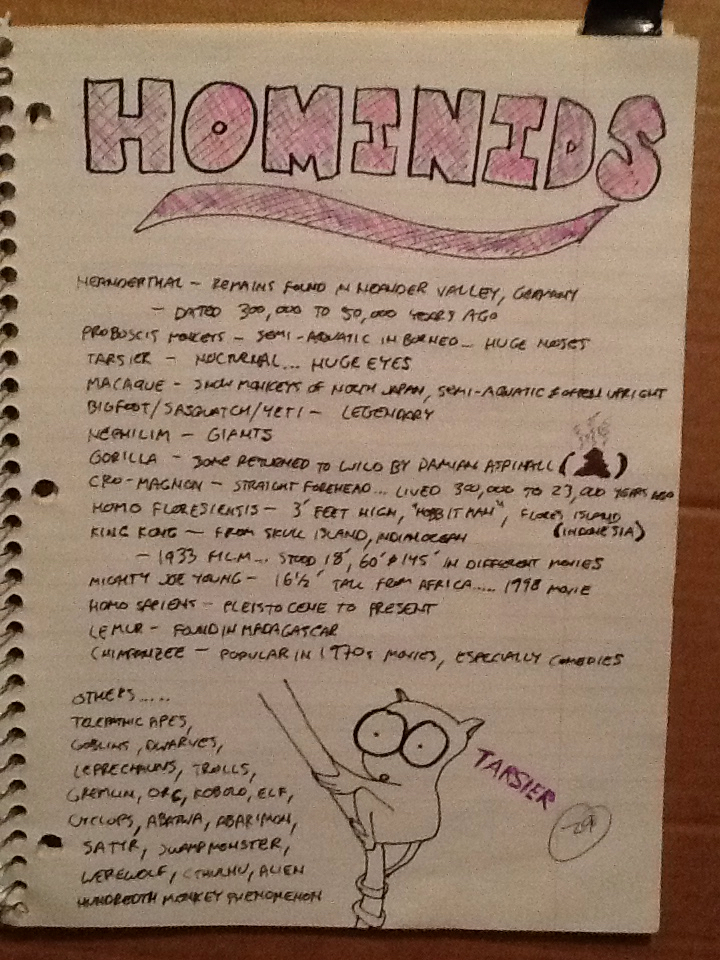 HOMINIDS
NEANDERTHAL - REMAINS FOUND IN NEANDER VALLEY, GERMANY
- DATED 300,000 TO 50,000 YEARS AGO
PROBOSCIS MONKEYS - SEMI-AQUATIC IN BORNEO... HUGE NOSES
TARSIER - NOCTURNAL... HUGE EYES
MACAQUE - SNOW MONKEYS OF NORTH JAPAN, SEMI-AQUATIC & OFTEN UPRIGHT
BIGFOOT/SASQUATCH/YETI - LEGENDARY
NEPHILIM - GIANTS
GORILLA - SOME RETURNED TO WILD BY DAMIAN ASPINALL ( )
CRO-MAGNON - STRAIGHT FOREHEAD... LIVED 300,000 TO 23,000 YEARS AGO
HOMO FLORESIENSIS - 3' FEET HIGH, "HOBBIT MAN", FLORES ISLAND
(INDONESIA)
KING KONG - FROM SKULL ISLAND, INDIAN OCEAN
- 1933 FILM... STOOD 18', 60' & 145' IN DIFFERENT MOVIES
MIGHTY JOE YOUNG - 16½' TALL FROM AFRICA..... 1998 MOVIE
HOMO SAPIENS - PLEISTOCENE TO PRESENT
LEMUR - FOUND IN MADAGASCAR
CHIMPANZEE - POPULAR IN 1970s MOVIES, ESPECIALLY COMEDIES
OTHERS.....
TELEPATHIC APES,
GOBLINS, DWARVES,
LEPRECHAUNS, TROLLS,
GREMLIN, ORC, KOBOLD, ELF,
CYCLOPS, ABATWA, ABARIMON,
SATYR, SWAMP MONSTER,
WEREWOLF, CTHULHU, ALIEN
HUNDREDTH MONKEY PHENOMENON
TARSIER